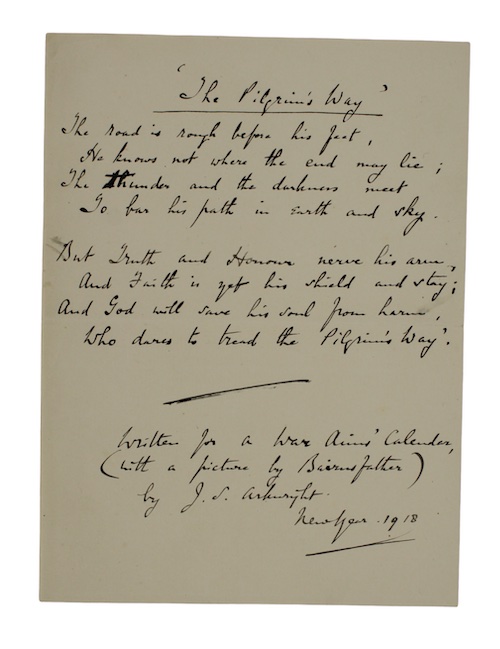 "The Pilgrim's Way"
The road is rough before his feet,
He knows not where the end may lie;
The thunder and the darkness meet
To bar his path in Earth and sky.
But Truth and Honour nerve his arm,
And Faith is yet his shield and stay;
And God will save his soul from harm,
Who dares to tread the Pilgrim's Way".
Written for a War Aims' Calender,
(with a picture by Bairnsfather)
by J. S. Arkwright.
New Year . 1918